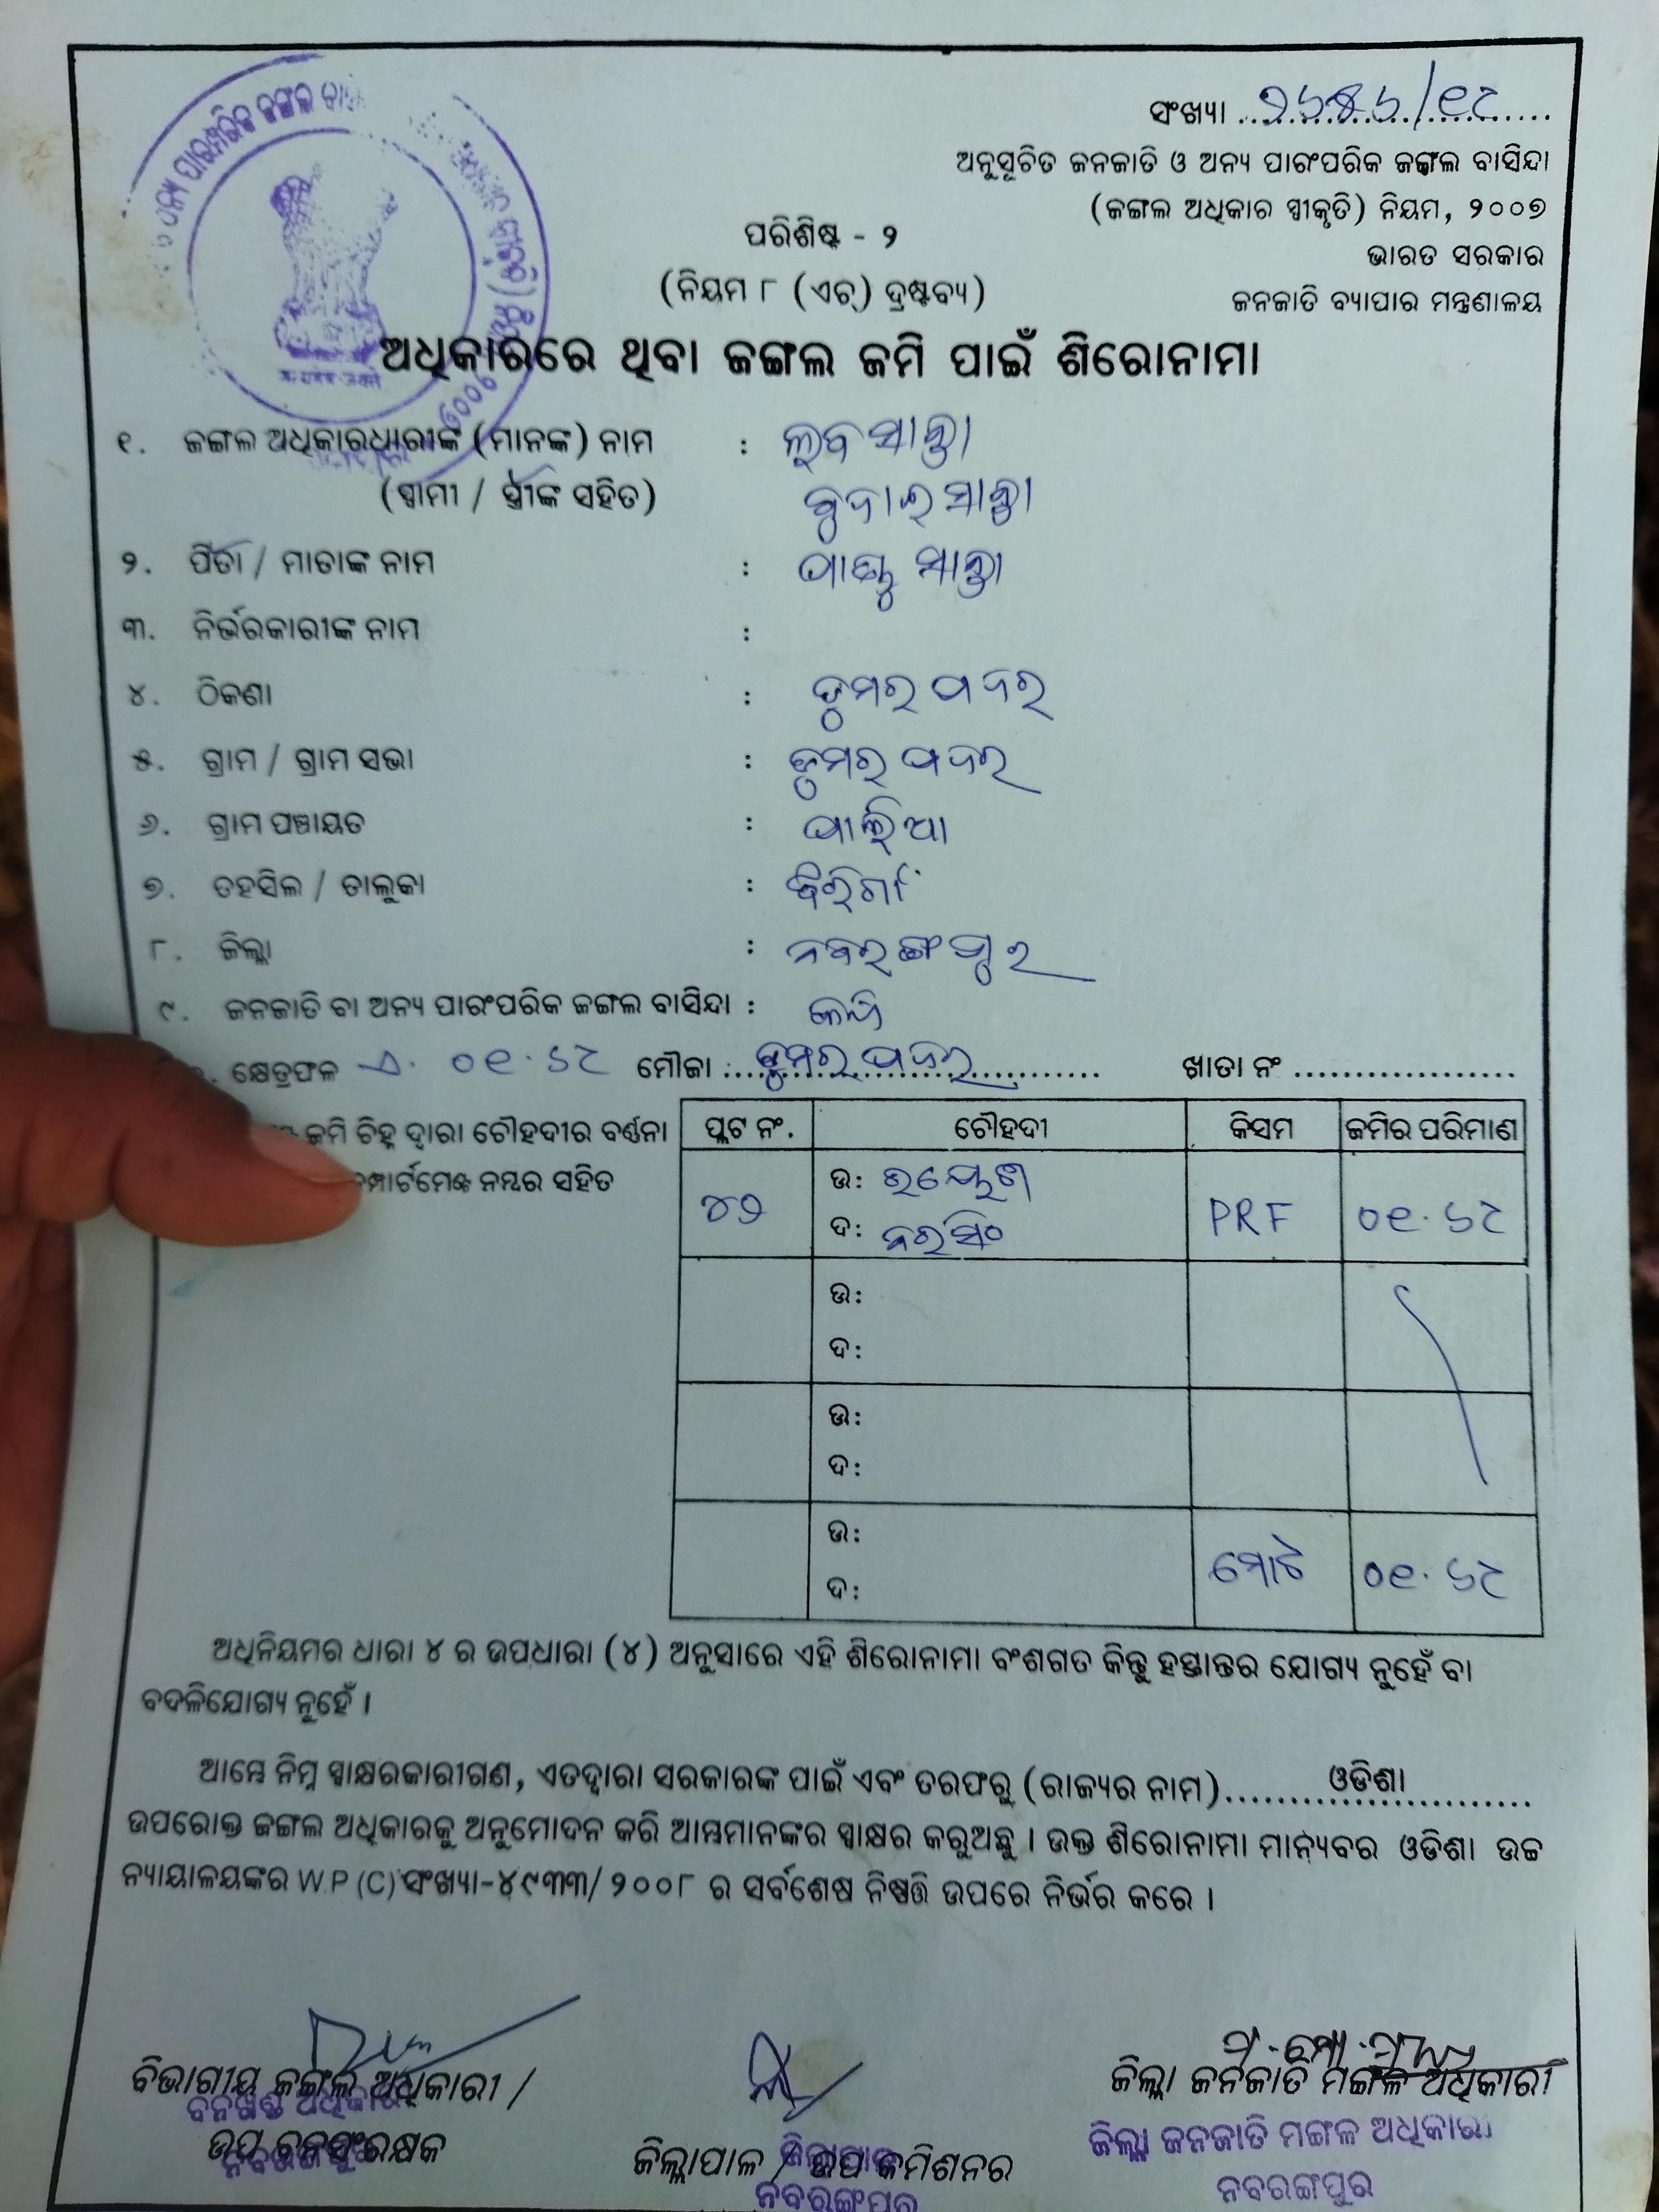 ସଂଖ୍ୟା
ଅନୁସୂଚିତ ଜନଜାତି ଓ ଅନ୍ୟ ପାରଂପରିକ ଜଙ୍ଗଲ ବାସିନ୍ଦା
(ଜଙ୍ଗଲ ଅଧିକାର ସ୍ୱୀକୃତି) ନିୟମ, ୨୦୦୭
ଭାରତ ସରକାର
ଜନଜାତି ବ୍ୟାପାର ମନ୍ତ୍ରଣାଳୟ
ପରିଶିଷ୍ଟ - ୨
(ନିୟମ ୮ (ଏଚ୍) ଦ୍ରଷ୍ଟବ୍ୟ)
ଅଧିକାରରେ ଥିବା ଜଙ୍ଗଲ ଜମି ପାଇଁ ଶିରୋନାମା
୧. ଜଙ୍ଗଲ ଅଧିକାରଧାରୀଙ୍କ (ମାନଙ୍କ) ନାମ :
(ସ୍ୱାମୀ / ସ୍ତ୍ରୀଙ୍କ ସହିତ)
୨. ପିତା / ମାତାଙ୍କ ନାମ :
୩. ନିର୍ଭରକାରୀଙ୍କ ନାମ :
୪. ଠିକଣା : ଡୁମର ପଦର
୫. ଗ୍ରାମ / ଗ୍ରାମ ସଭା : ଡୁମର ପଦର
୬. ଗ୍ରାମ ପଞ୍ଚାୟତ : ପାଲିଆ
୭. ତହସିଲ / ତାଲୁକା :
୮. ଜିଲ୍ଲା : ନବରଙ୍ଗପୁର
୯. ଜନଜାତି ବା ଅନ୍ୟ ପାରଂପରିକ ଜଙ୍ଗଲ ବାସିନ୍ଦା :
କ୍ଷେତ୍ରଫଳ ଏ. ୦୧.୬୮ ମୌଜା : ଡୁମର ପଦର ଖାତା ନଂ
ଜମି ଚିହ୍ନ ଦ୍ୱାରା ଚୌହଦୀର ବର୍ଣ୍ଣନା
ନମ୍ବର ସହିତ
ପ୍ଲଟ ନଂ. ଚୌହଦୀ କିସମ ଜମିର ପରିମାଣ
୪୨ ଉ: PRF ୦୧.୬୮
ଦ: ନରସିଂ
ଉ:
ଦ:
ଉ:
ଦ:
ଉ: ମୋଟ ୦୧.୬୮
ଦ:
ଅଧିନିୟମର ଧାରା ୪ ର ଉପଧାରା (୪) ଅନୁସାରେ ଏହି ଶିରୋନାମା ବଂଶଗତ କିନ୍ତୁ ହସ୍ତାନ୍ତର ଯୋଗ୍ୟ ନୁହେଁ ବା
ବଦଳିଯୋଗ୍ୟ ନୁହେଁ ।
ଆମ୍ଭେ ନିମ୍ନ ସ୍ୱାକ୍ଷରକାରୀଗଣ, ଏତଦ୍ୱାରା ସରକାରଙ୍କ ପାଇଁ ଏବଂ ତରଫରୁ (ରାଜ୍ୟର ନାମ) ଓଡିଶା
ଉପରୋକ୍ତ ଜଙ୍ଗଲ ଅଧିକାରକୁ ଅନୁମୋଦନ କରି ଆମ୍ଭମାନଙ୍କର ସ୍ୱାକ୍ଷର କରୁଅଛୁ । ଉକ୍ତ ଶିରୋନାମା ମାନ୍ୟବର ଓଡିଶା ଉଚ୍ଚ
ନ୍ୟାୟାଳୟଙ୍କର W.P (C) ସଂଖ୍ୟା-୪୯୩୩/୨୦୦୮ ର ସର୍ବଶେଷ ନିଷ୍ପତ୍ତି ଉପରେ ନିର୍ଭର କରେ ।
ବିଭାଗୀୟ ଜଙ୍ଗଲ ଅଧିକାରୀ /
ଉପ ବନସଂରକ୍ଷକ
ଜିଲ୍ଲାପାଳ / ଉପ କମିଶନର
ନବରଙ୍ଗପୁର
ଜିଲ୍ଲା ଜନଜାତି ମଙ୍ଗଳ ଅଧିକାରୀ
ଜିଲ୍ଲା ଜନଜାତି ମଙ୍ଗଳ ଅଧିକାରୀ
ନବରଙ୍ଗପୁର